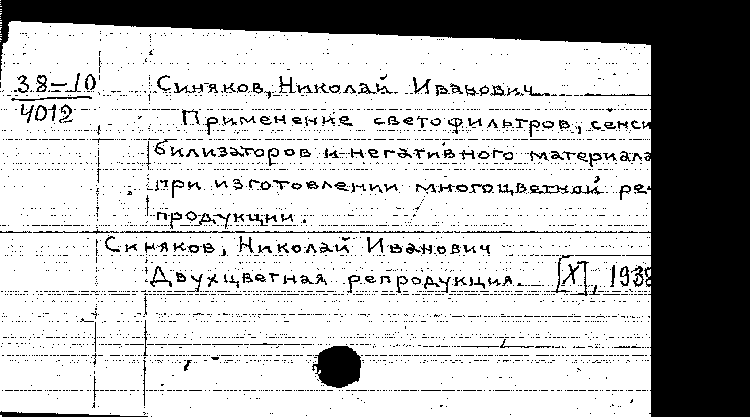 38-10 Синяков, Николай Иванович.
4012 Применение светофильтров, сенси
билизаторов и негативного материала
при изготовлении многоцветной ре-
продукции.
Синяков, Николай Иванович
Двухцветная репродукция. [X], 1938